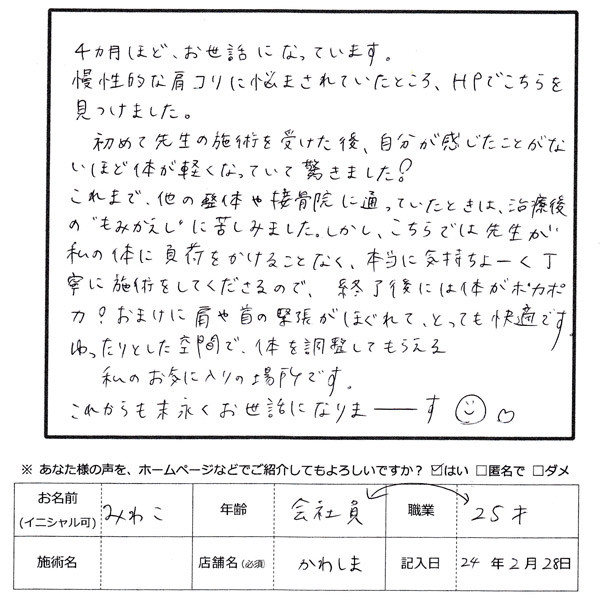 4カ月ほど、お世話になっています。
慢性的な肩コリに悩まされていたところ、HPでこちらを
見つけました。
初めて先生の施術を受けた後、自分が感じたことがな
いほど体が軽くなっていて驚きました!
これまで、他の整体や接骨院に通っていたときは、治療後
の"もみかえし"に苦しみました。しかし、こちらでは先生が
私の体に負荷をかけることなく、本当に気持ちよーく丁
寧に施術をしてくださるので、終了後には体がポカポ
カ?おまけに肩や首の緊張がほぐれて、とっても快適です
ゆったりとした空間で、体を調整してもらえる
私のお気に入りの場所です。
これからも末永くお世話になりま――す
※ あなた様の声を、ホームページなどでご紹介してもよろしいですか? ☑はい □匿名で □ダメ
お名前(イニシャル可) みわこ 年齢 会社員 職業 25才
施術名 店舗名(必須) かわしま 記入日 24年2月28日